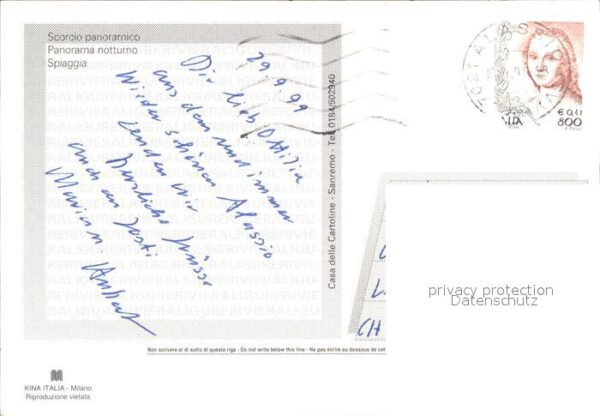 Scorcio panoramico
Panorama notturno
Spiaggia
29.9.99
Die lieb Ottilia
aus dem und immer
wieder schönen Alassio
senden wir
herzliche Grüsse
auch an Josti
Marian.
Casa delle Cartoline - Sanremo - Tel. 0184/502940
ALASSIO
€ 0,41
800
privacy protection
Datenschutz
CH
Non scrivere al di sotto di questa riga - Do not write below this line - Ne pas écrire au dessous de cet
KINA ITALIA - Milano
Riproduzione vietata